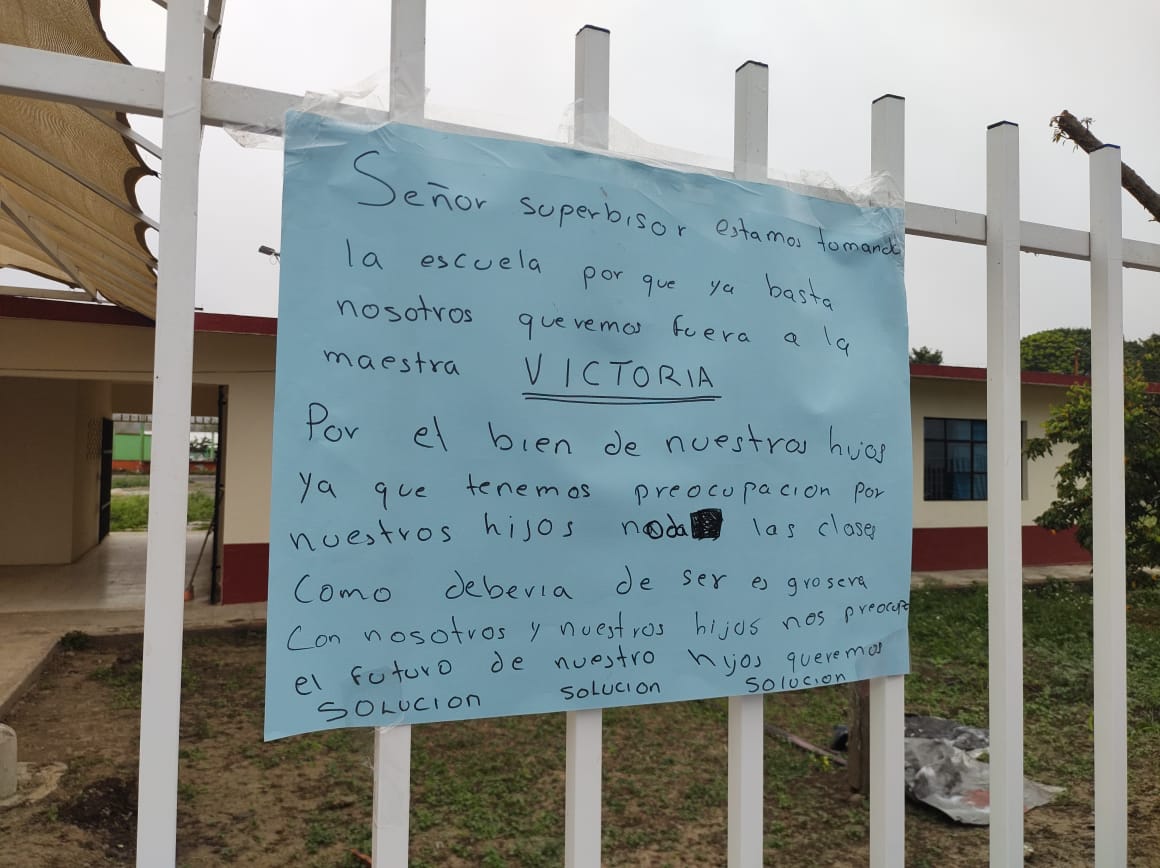 Señor superbisor estamos tomando
la escuela por que ya basta
nosotros queremos fuera a la
maestra VICTORIA
Por el bien de nuestros hijos
Ya que tenemos preocupacion por
nuestros hijos no da las clases
Como deberia de ser es grosera
Con nosotros y nuestros hijos nos preocupa
el futuro de nuestro hijos queremos
SOLUCION SOLUCION SOLUCION